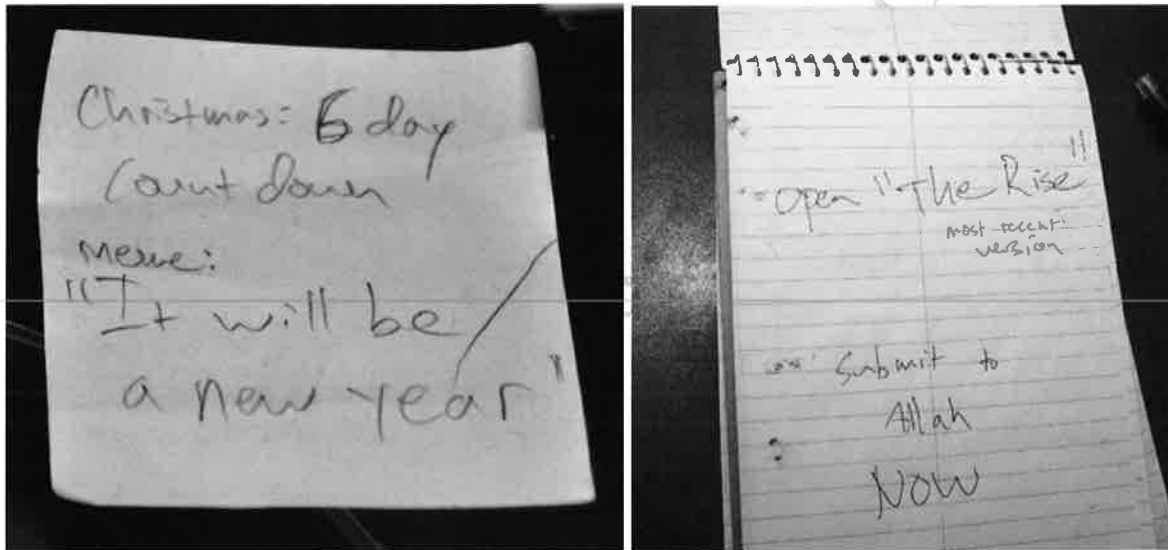 Christmas: 6 day
Count down
meme:
"It will be
a new year"
open "The Rise"!!!
most recent
version
Submit to
Allah
NOW